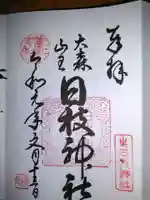 奉拝
大森
山王
日枝神社
令和元年文月十三日